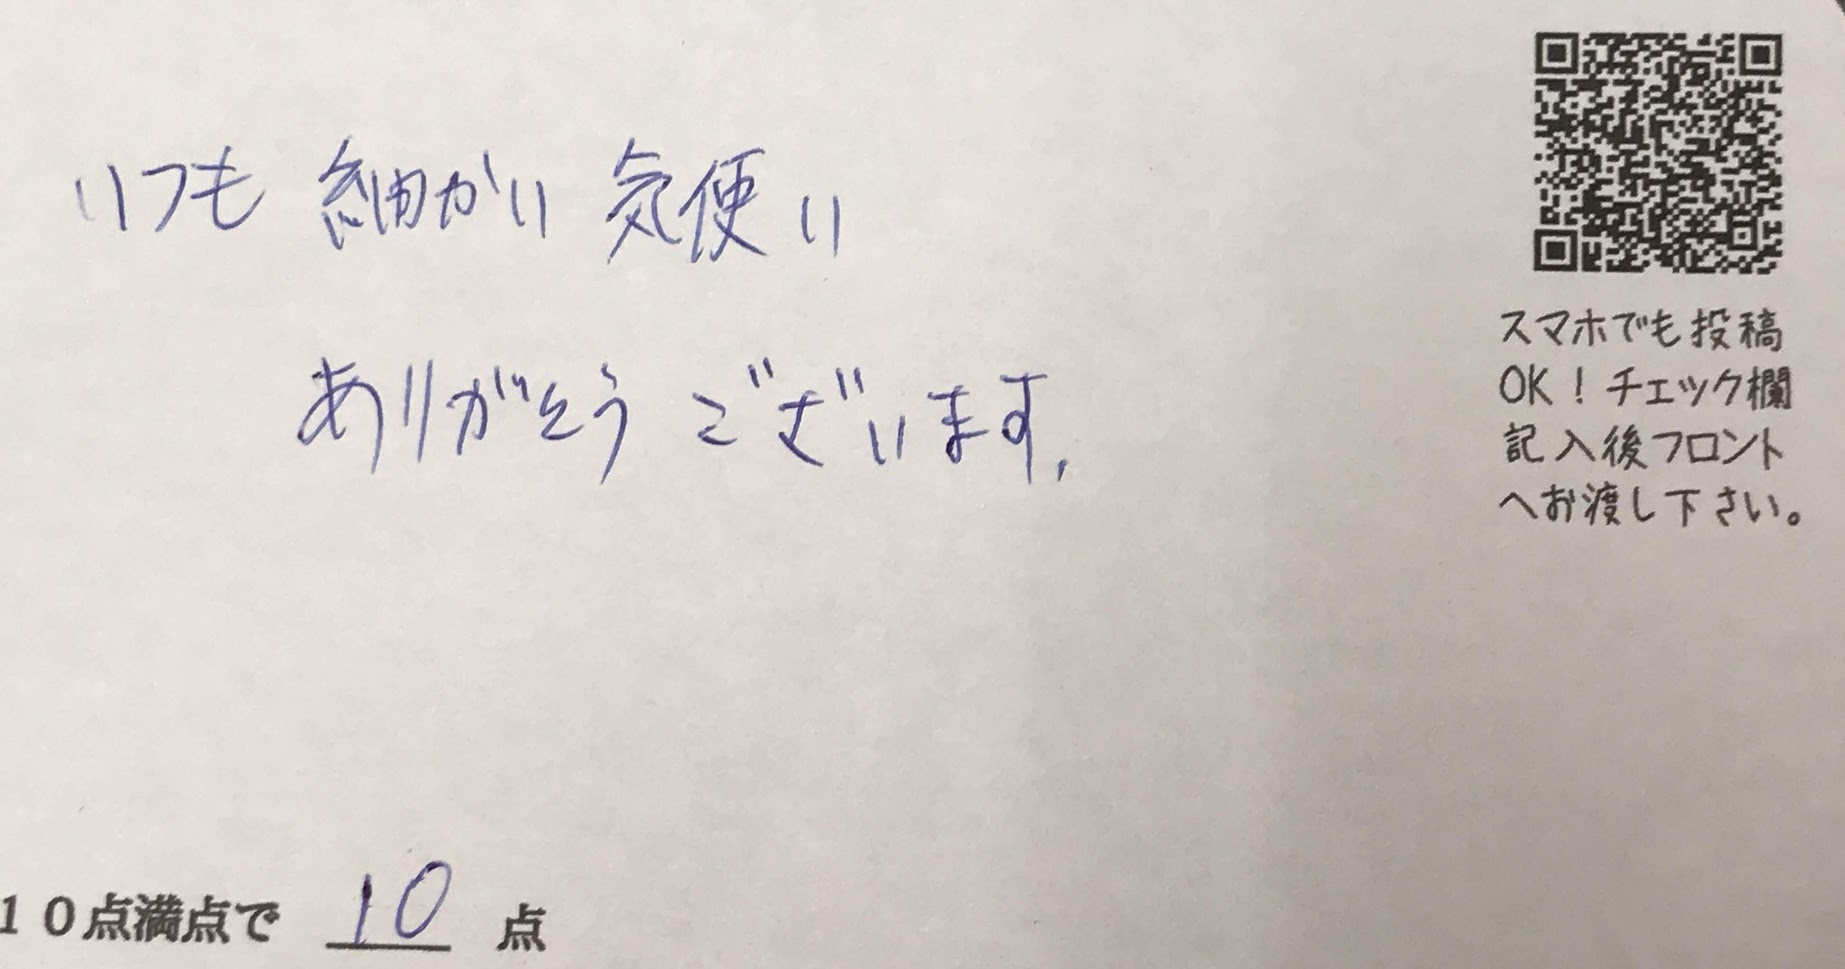 いつも 細かい 気便い
ありがとう ございます.
スマホでも投稿
OK！チェック欄
記入後フロント
へお渡し下さい。
10点満点で 10 点